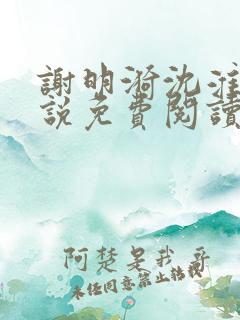 謝明漪沈淮
說免費閱讀
阿楚是我哥
未经同意禁止转载